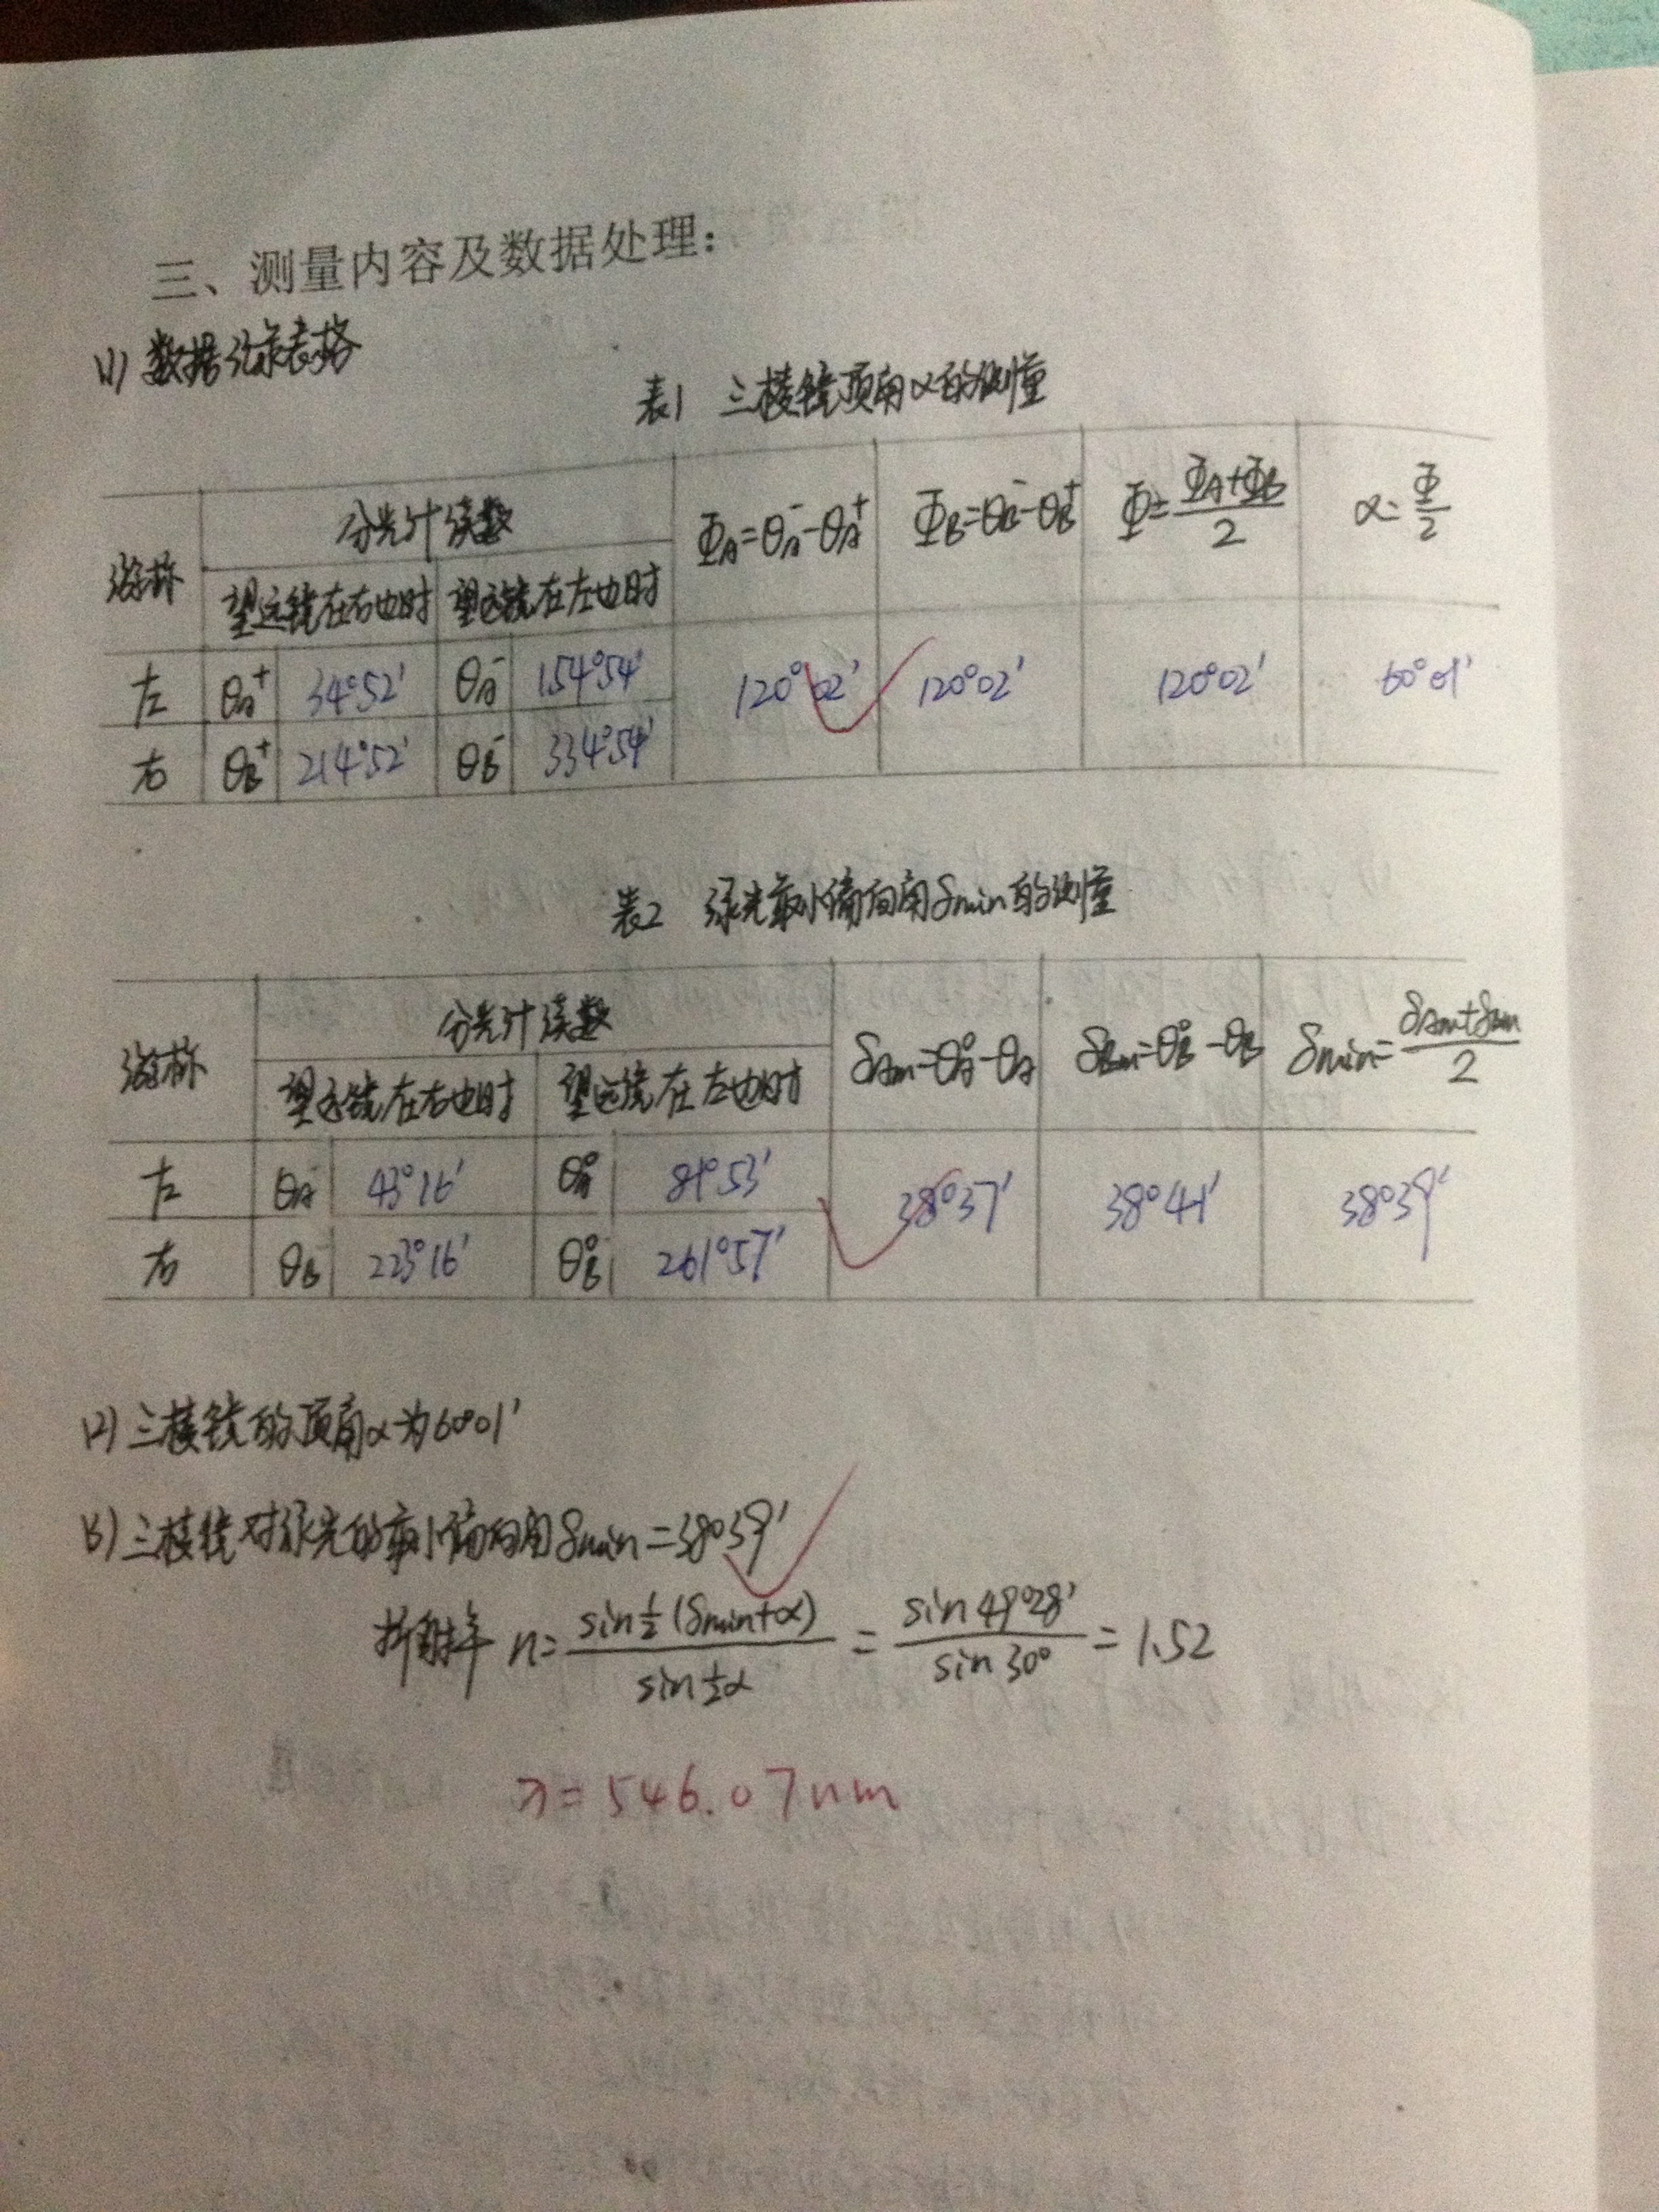 三、测量内容及数据处理：
(1) 数据记录表格
表1 三棱镜顶角α的测量
游标 分光计读数 Φ_A=θ_A⁻-θ_A⁺ Φ_B=θ_B⁻-θ_B⁺ Φ=(Φ_A+Φ_B)/2 α=Φ/2
望远镜在右边时 望远镜在左边时
左 θ_A⁺ 34°52′ θ_A⁻ 154°54′ 120°02′ 120°02′ 120°02′ 60°01′
右 θ_B⁺ 214°52′ θ_B⁻ 334°54′
表2 绿光最小偏向角δmin的测量
游标 分光计读数 δ_Am=θ_A⁰-θ_A δ_Bm=θ_B⁰-θ_B δmin=(δ_Am+δ_Bm)/2
望远镜在右边时 望远镜在左边时
左 θ_A 43°16′ θ_A⁰ 81°53′ 38°37′ 38°41′ 38°39′
右 θ_B 223°16′ θ_B⁰ 261°57′
(2) 三棱镜的顶角α为60°01′
(3) 三棱镜对绿光的最小偏向角δmin=38°39′
折射率 n=sin½(δmin+α)/sin½α=sin49°28′/sin30°=1.52
λ=546.07nm